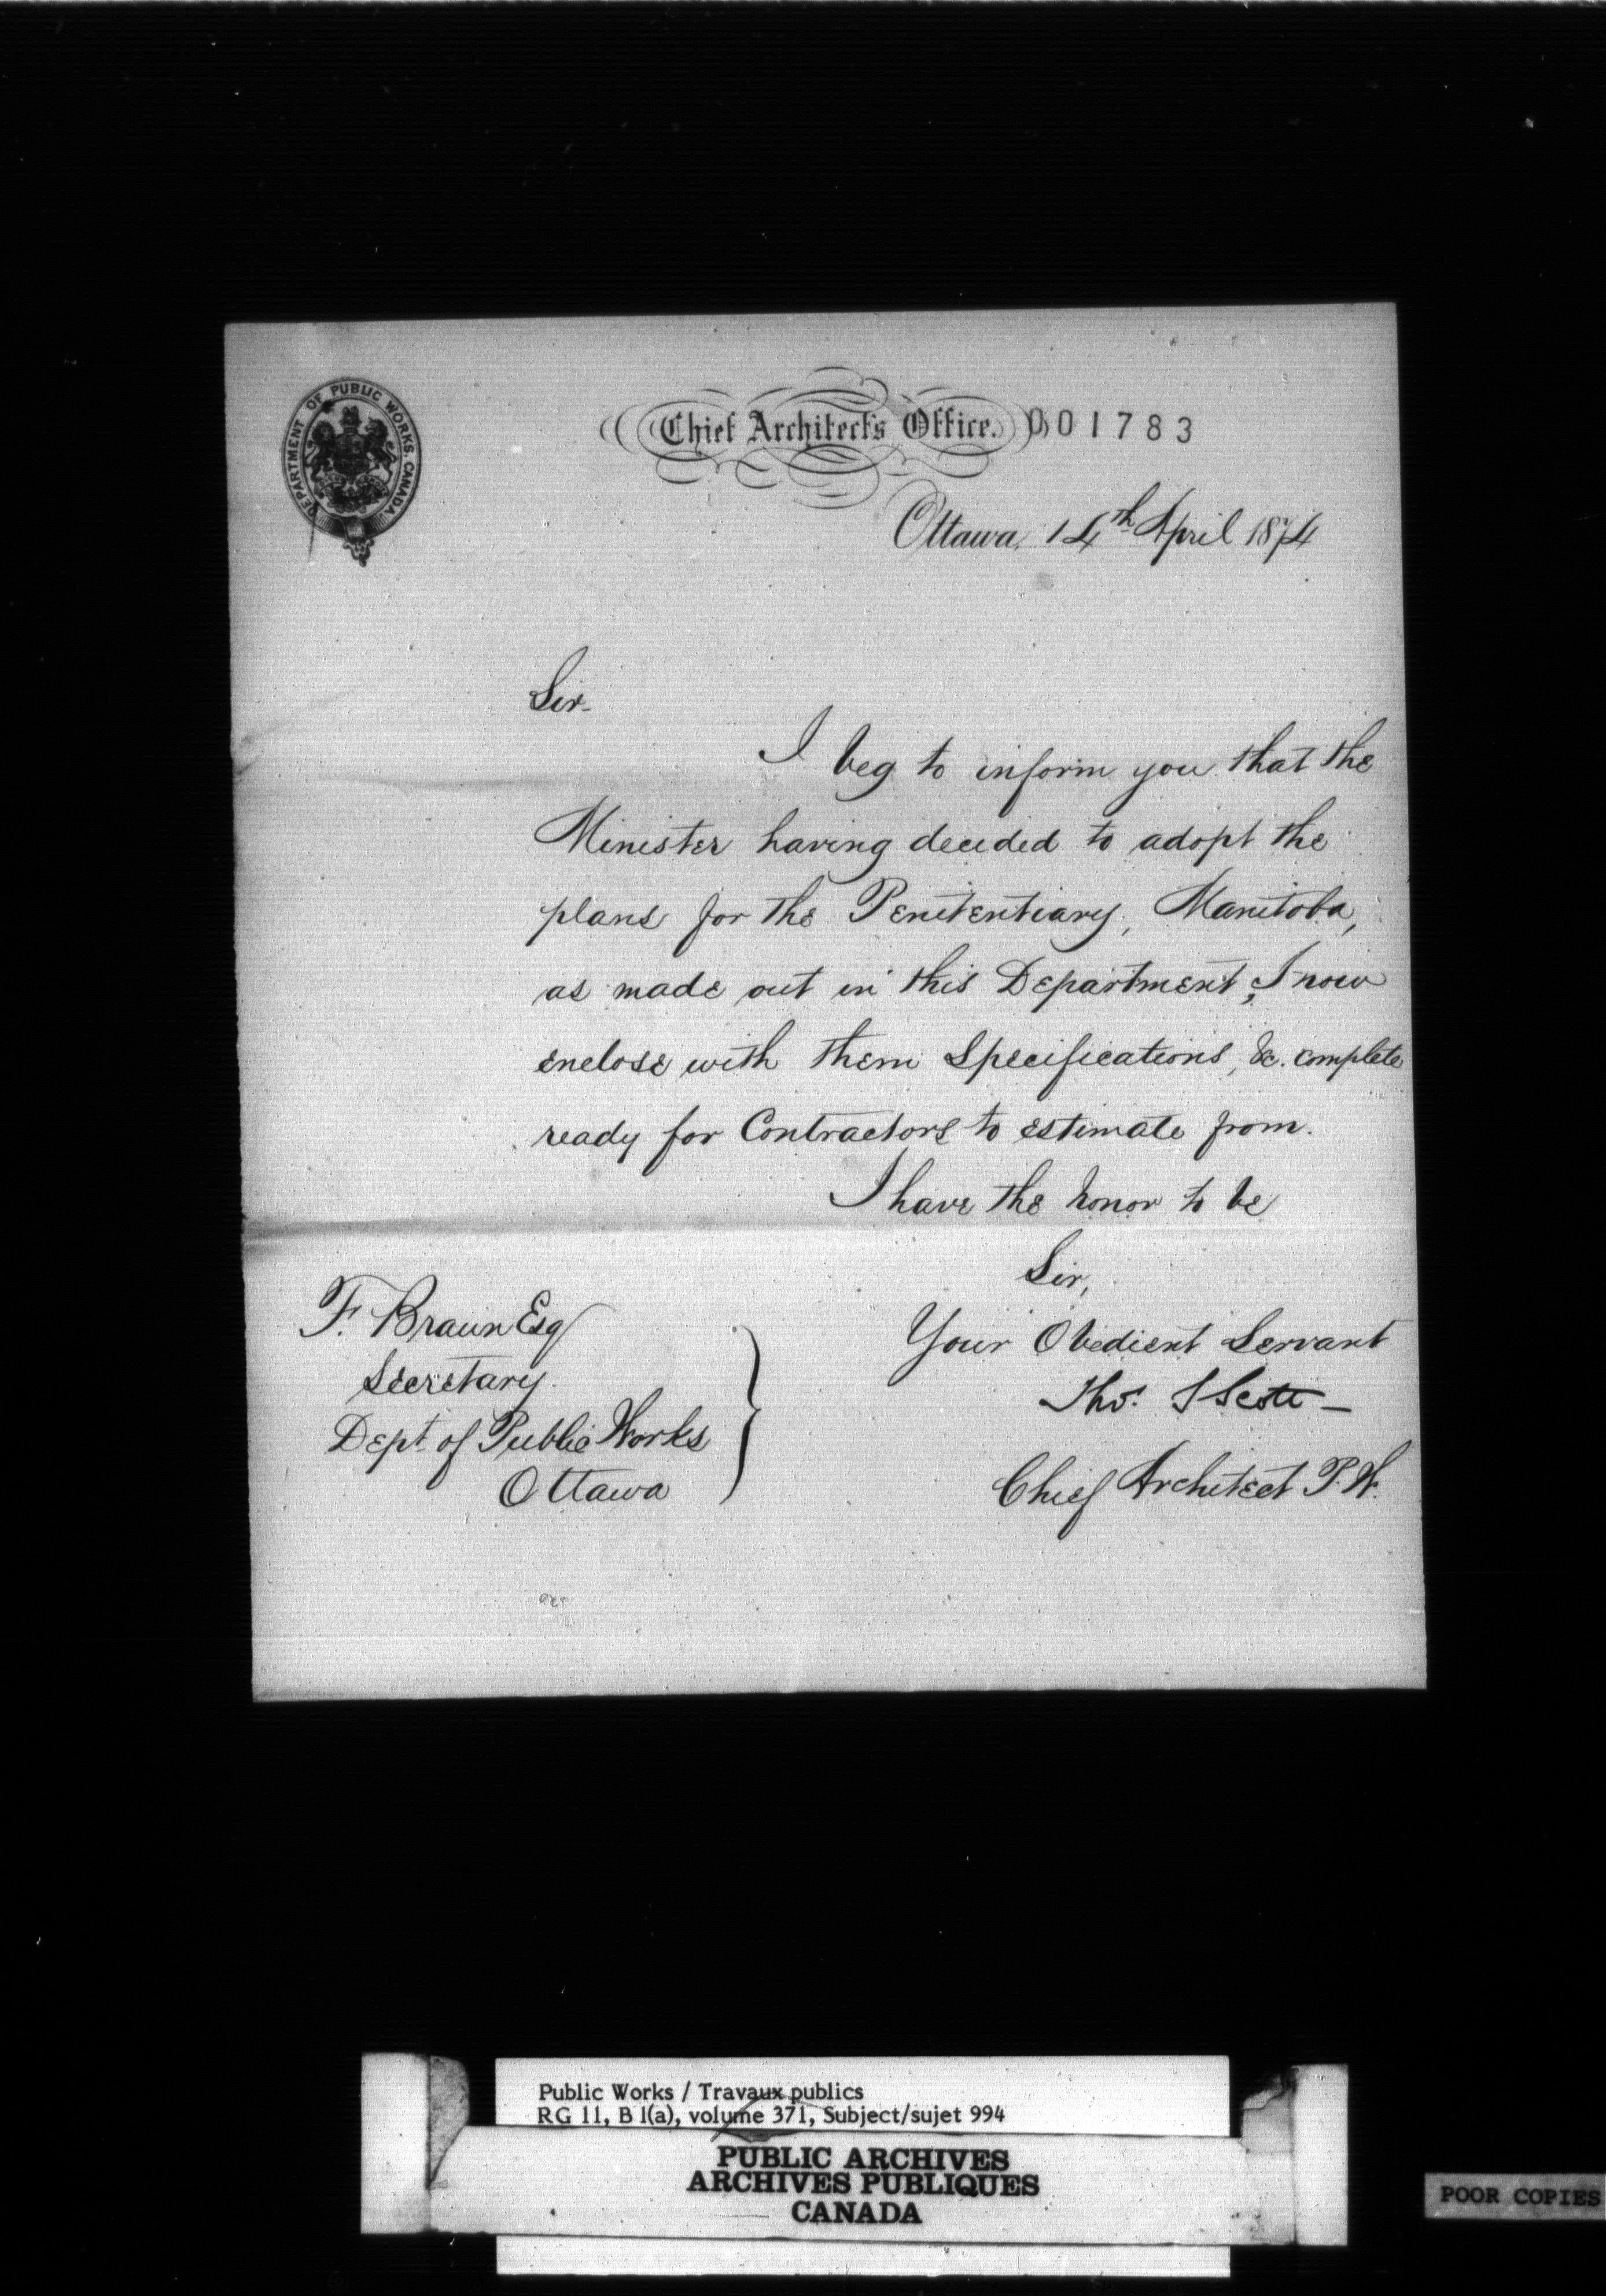 DEPARTMENT OF PUBLIC WORKS, CANADA.
Chief Architect's Office.
001783
Ottawa, 14th April 1874
Sir-
I beg to inform you that the
Minister having decided to adopt the
plans for the Penitentiary, Manitoba,
as made out in this Department, I now
enclose with them Specifications, &c. complete
ready for Contractors to estimate from.
I have the honor to be
Sir,
Your Obedient Servant
Thos. S Scott -
Chief Architect P.W.
F. Braun Esq
Secretary
Dept. of Public Works
Ottawa
Public Works / Travaux publics
RG 11, B 1(a), volume 371, Subject/sujet 994
PUBLIC ARCHIVES
ARCHIVES PUBLIQUES
CANADA
POOR COPIES